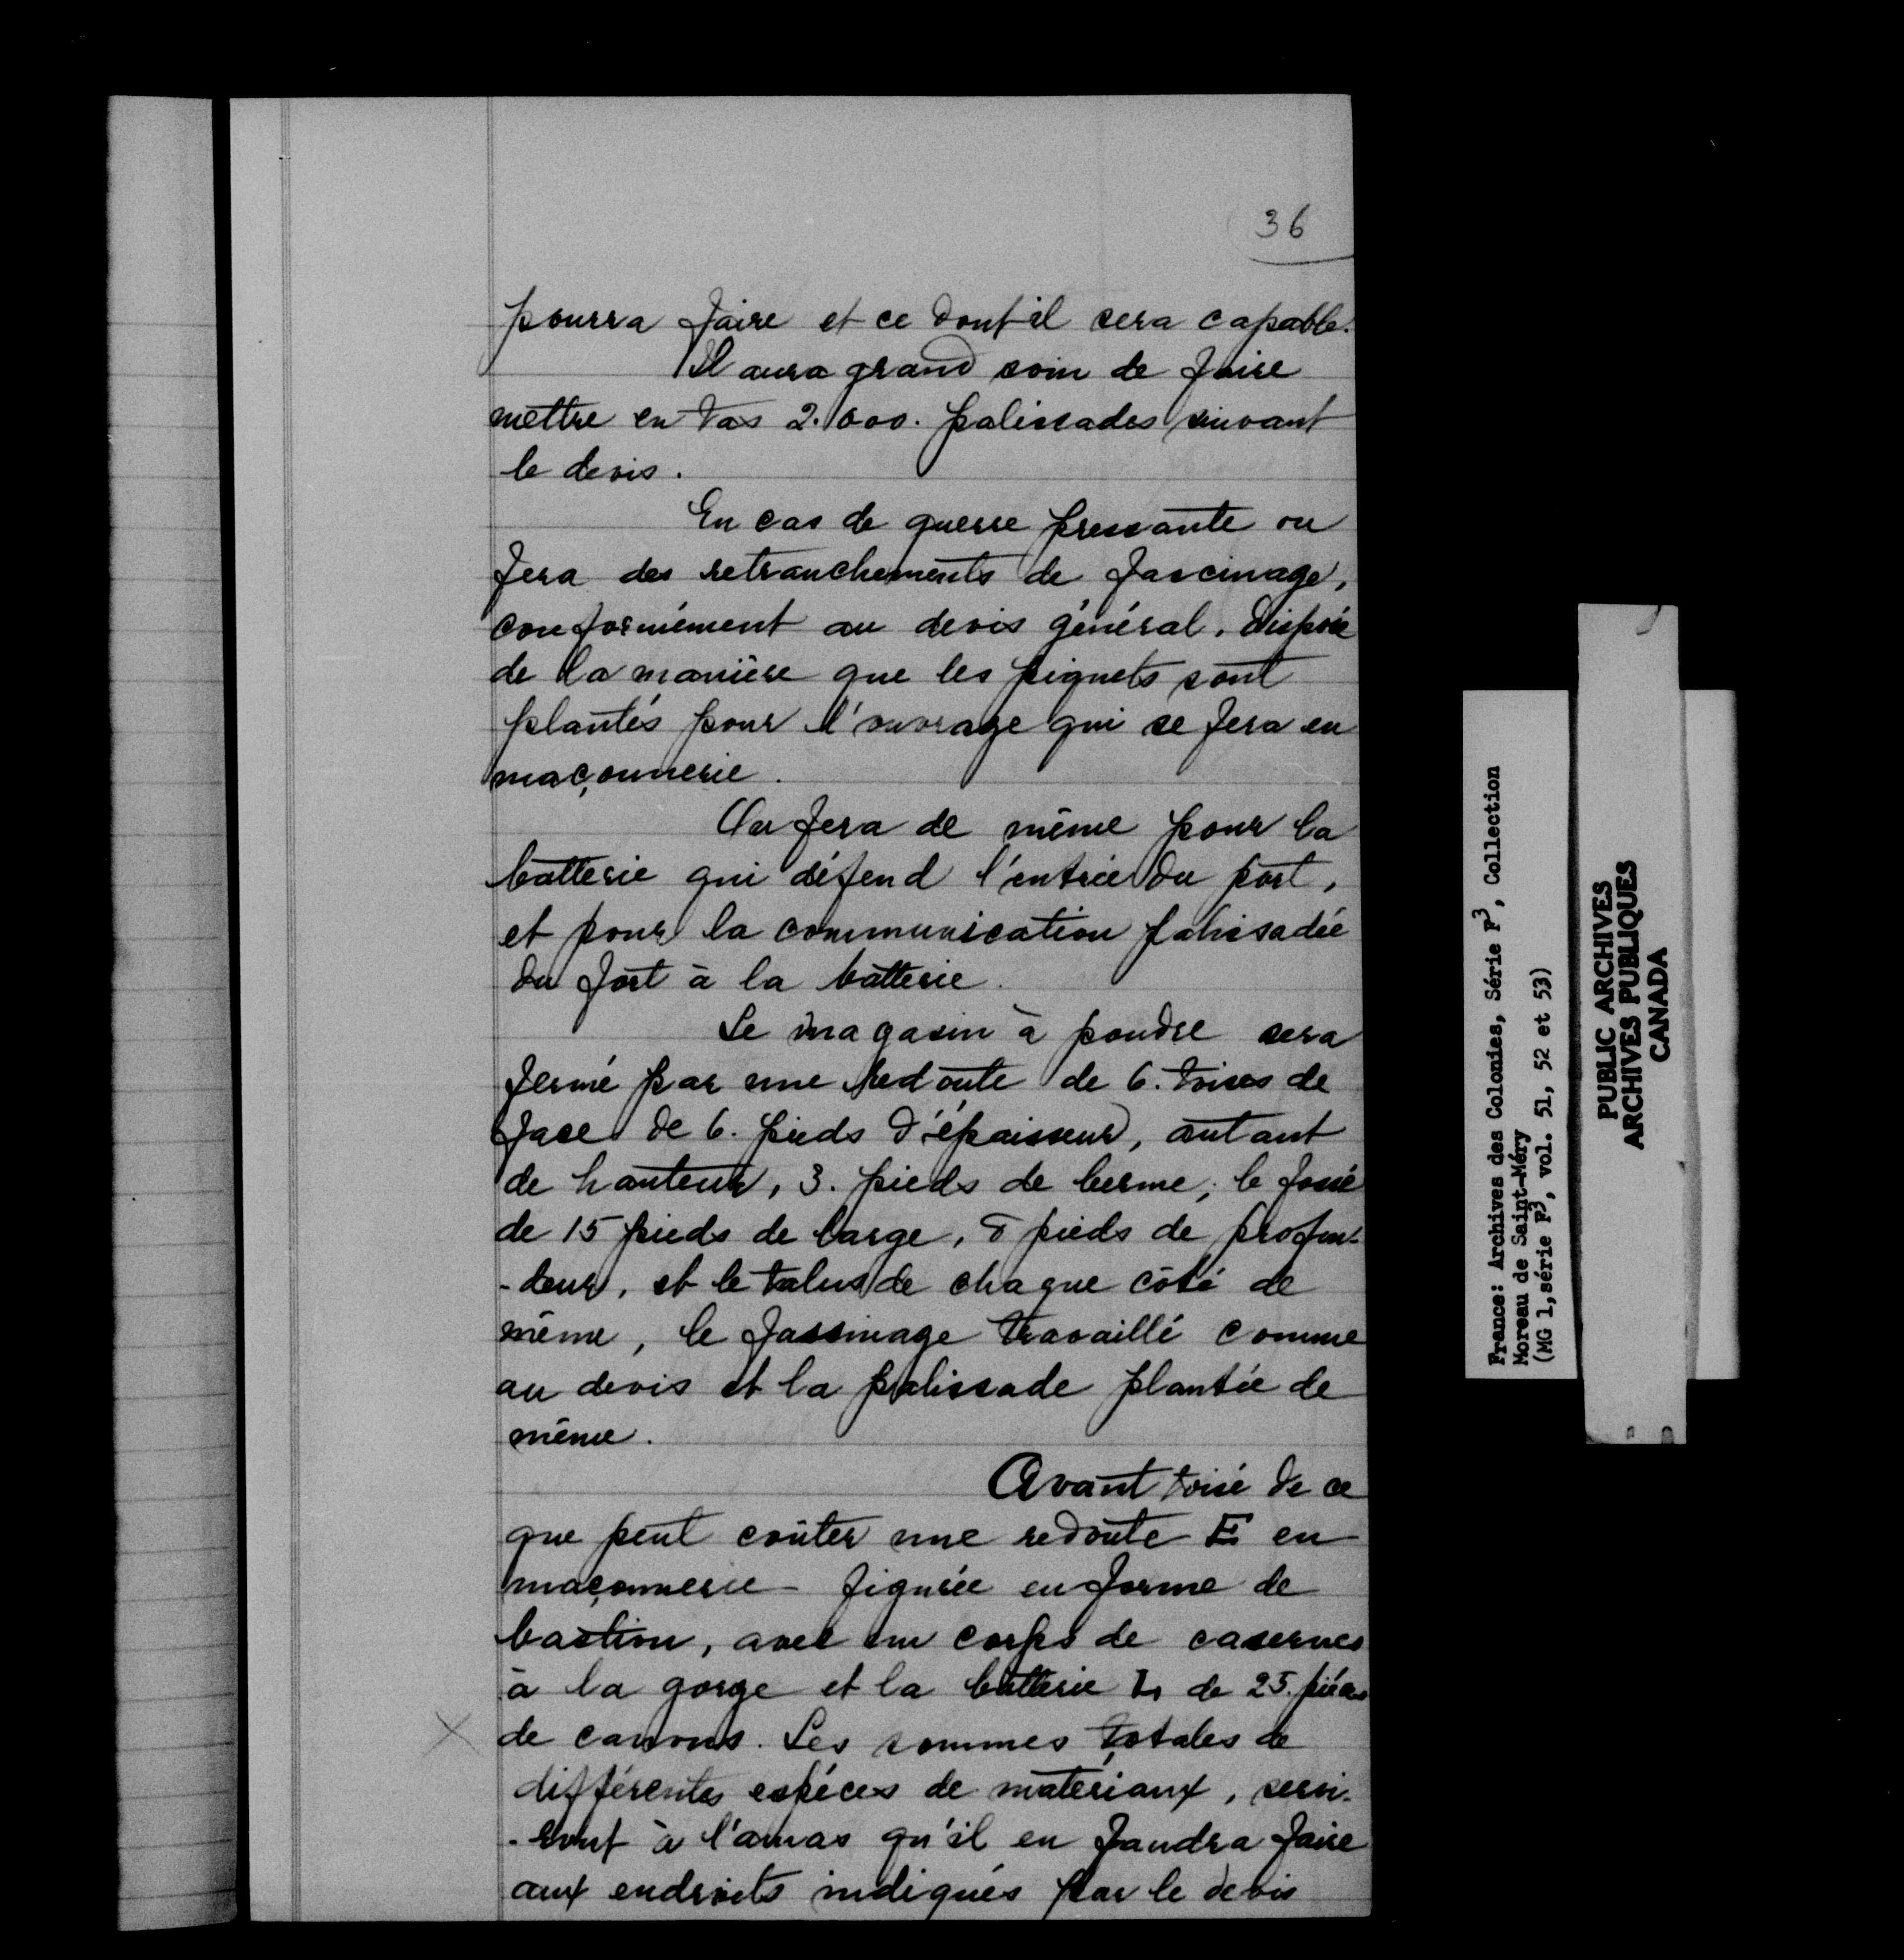 36
pourra faire et ce dont il sera capable.
Il aura grand soin de faire
mettre en tas 2.000. palissades suivant
le devis.
En cas de guerre pressante on
fera des retranchements de fascinage,
conformément au devis général, disposé
de la manière que les piquets sont
plantés pour l'ouvrage qui se fera en
maçonnerie.
On fera de même pour la
batterie qui défend l'entrée du port,
et pour la communication palissadée
du fort à la batterie.
Le magasin à poudre sera
fermé par une redoute de 6. toises de
face de 6. pieds d'épaisseur, autant
de hauteur, 3. pieds de berme; le fossé
de 15 pieds de large, 8 pieds de profon-
-deur, et le talus de chaque côté de
même, le fassinage travaillé comme
au devis et la palissade plantée de
même.
Avant toisé de ce
que peut coûter une redoute E en
maçonnerie figurée en forme de
bastion, avec un corps de casernes
à la gorge et la batterie L de 25. pièces
de canons. Les sommes totales de
différentes espéces de materiaux, servi-
-ront à l'amas qu'il en faudra faire
aux endroits indiqués par le devis
France: Archives des Colonies, Série F3, Collection
Moreau de Saint-Méry
(MG 1, série F3, vol. 51, 52 et 53)
PUBLIC ARCHIVES
ARCHIVES PUBLIQUES
CANADA